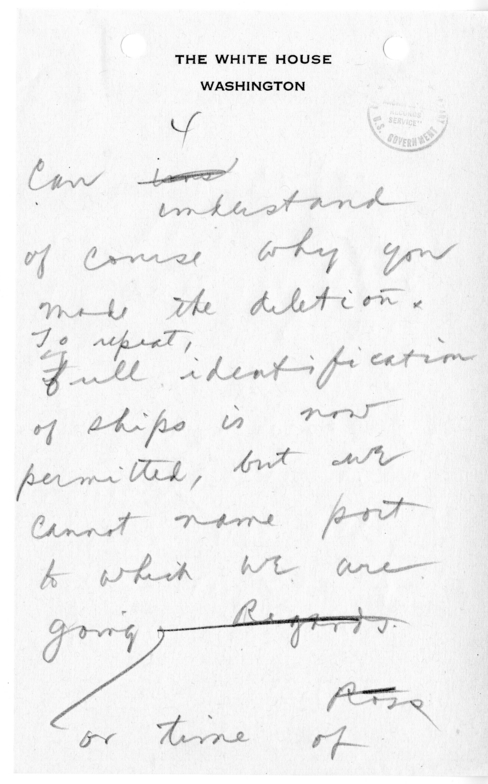 THE WHITE HOUSE
WASHINGTON
SERVICE
U.S. GOVERNMENT
4
Can
understand
of course why you
made the deletion.
To repeat,
Full identification
of ships is now
permitted, but we
cannot name port
to which we are
going, Regards.
Ross
or time of